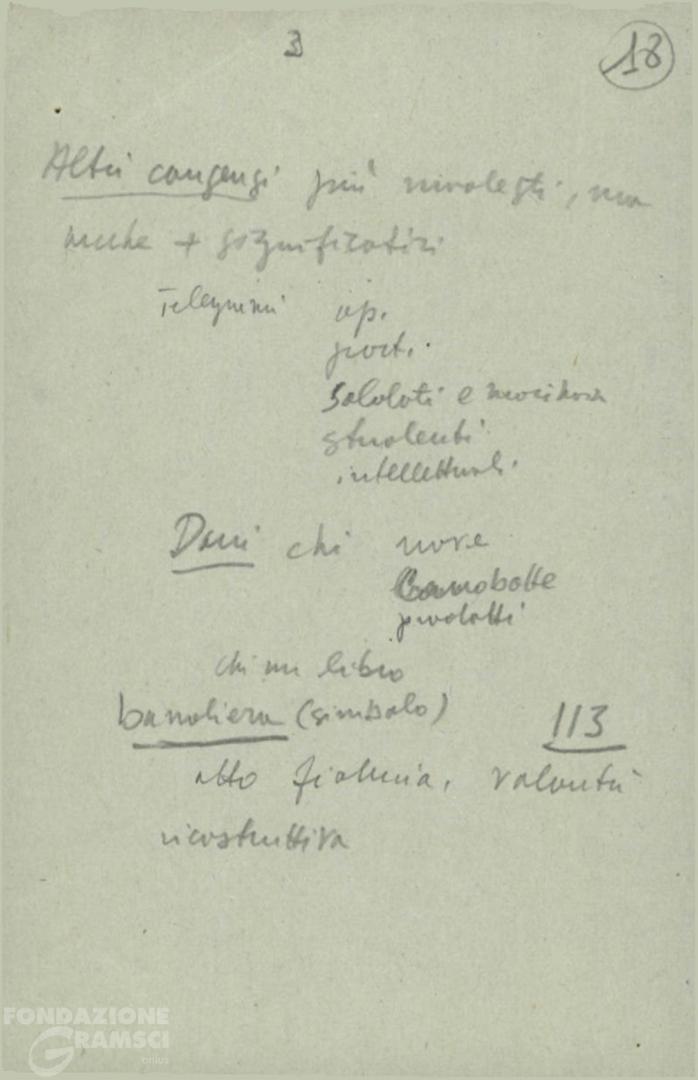 3
18
Altri congegni più modesti, ma
anche + significativi
Telegrammi op.
port.
soldati e marinai
studenti
intellettuali.
Doni chi nave
barbabietole
prodotti
chi un libro
bandiera (simbolo) 113
atto fiducia, volontà
ricostruttiva
FONDAZIONE
GRAMSCI
onlus